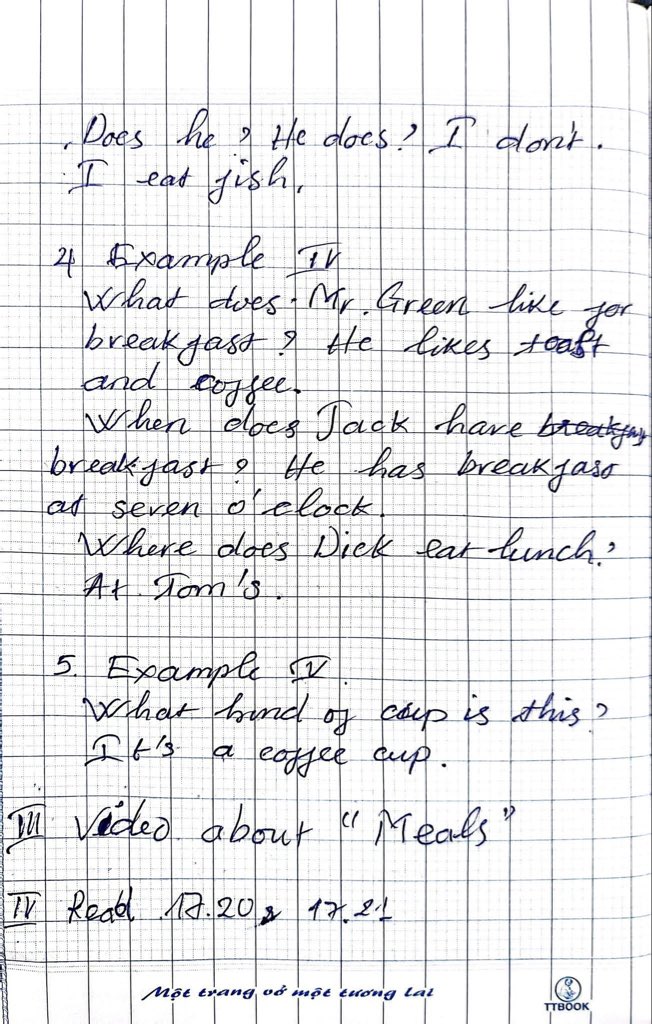 Does he? He does? I don't.
I eat fish.
4 Example IV
What does Mr. Green like for
breakfast? He likes toast
and coffee.
When does Jack have breakfas
breakfast? He has breakfast
at seven o'clock.
Where does Dick eat lunch?
At Tom's.
5. Example IV.
What kind of cup is this?
It's a coffee cup.
III Video about "Meals"
IV Read 17.20, 17.21
Một trang vở một tương lai
TTBOOK